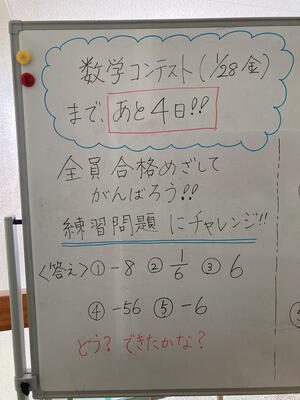 数学コンテスト(1/28 金)
まで、あと4日!!
全員合格めざして
がんばろう!!
練習問題にチャレンジ!!
<答え> ① -8 ② 1/6 ③ 6
④ -56 ⑤ -6
どう? できたかな?